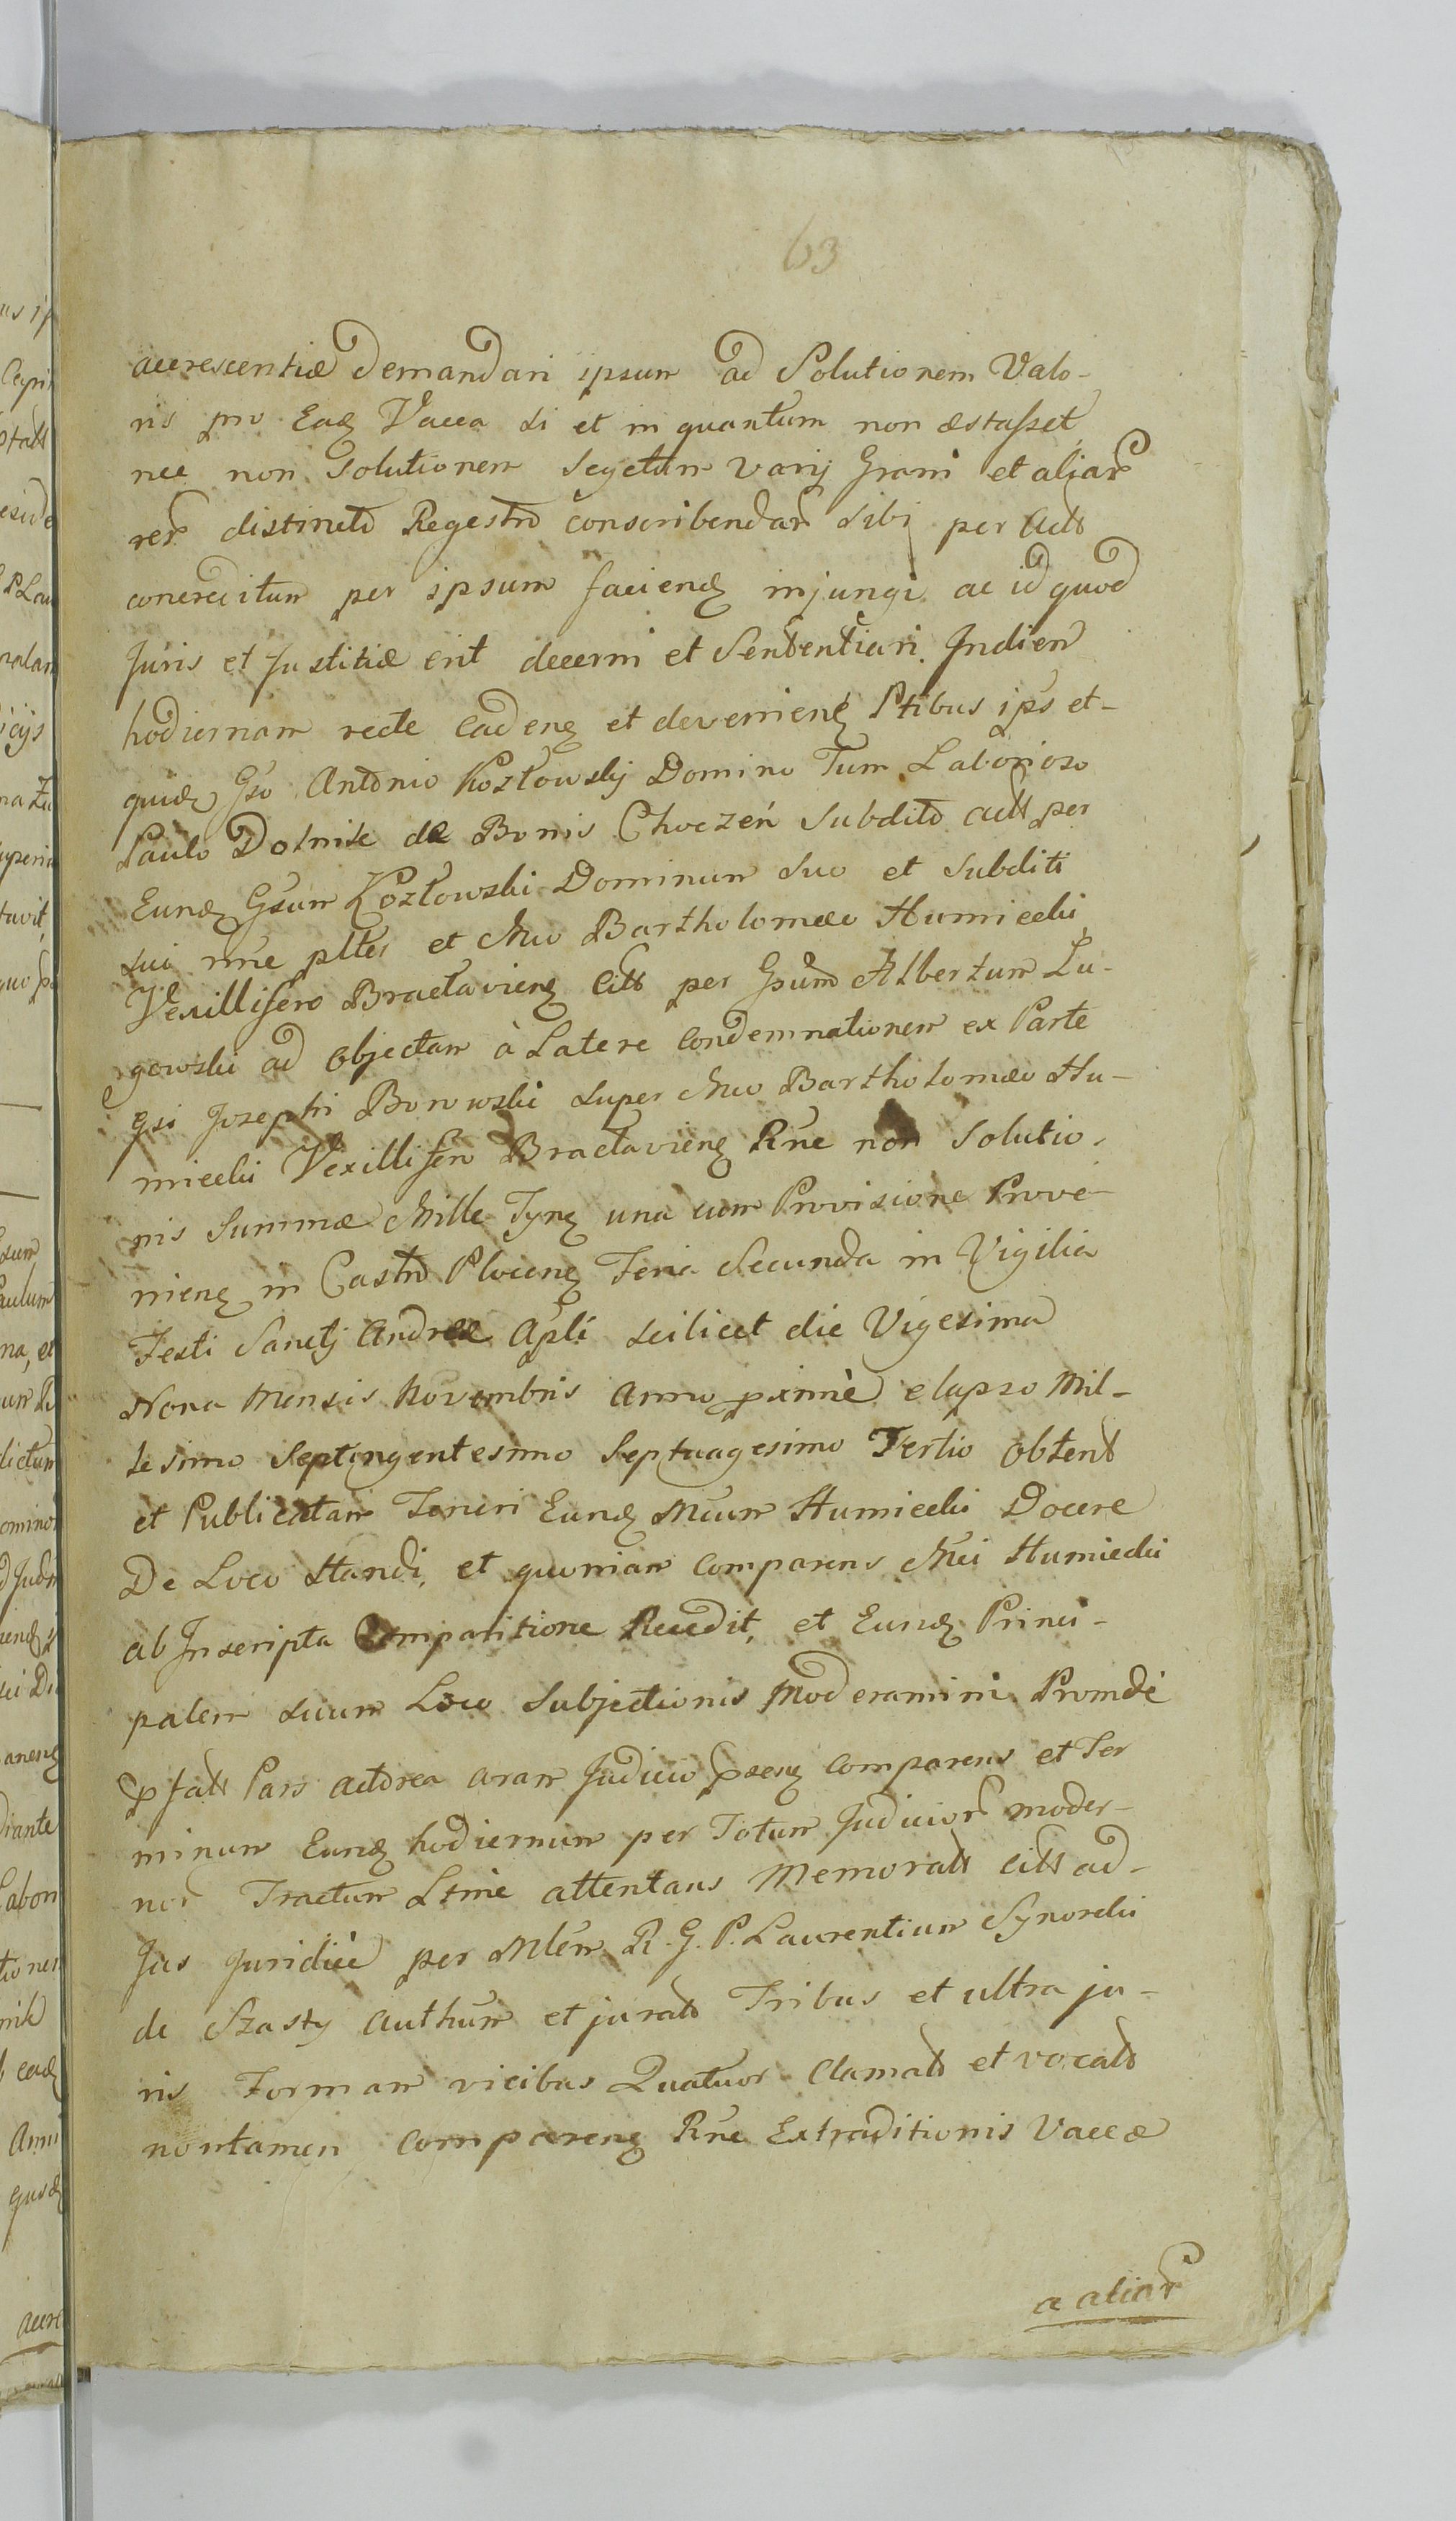 63
accrescentiæ demandari ipsum ad Solutionem Valo-
ris pro Eadꝫ Vacca si et in quantum non æstasset
nec non Solutionem Segetum varij Grani et aliar̃
rer̃ distincto Regestro conscribendar̃ sibi per Act
concreditum per ipsum faciendꝫ injungi ac id quod
Juris et Justitiæ erit decerni et Sententiari. In diem
hodiernam recte cadenꝫ et devenienꝫ Ptibus ips et-
quidꝫ Gso Antonio Kozłowskj Domino Tum Laborioso
Paulo Dolnik de Bonis Choczeń Subdito actt per
Eundꝫ Gsum Kozłowski Dominum suo et Subditi
sui nne plter et Mco Bartholomæo Humiecki
Vexillifero Bractavienꝫ Citt per Gsum Albertum Lu-
gowski ad objectam à Latere Condemnationem ex Parte
Gsi Josephi Borowski super Mco Bartholomæo Hu-
miecki Vexillifero Bractavienꝫ Rne non Solutio-
nis Summæ Mille Tynꝫ una cum Provisione Prove-
nienꝫ in Castro Plocenꝫ Feria Secunda in Vigilia
Festi Sanctj Andreæ Apli scilicet die Vigesima
Nona Mensis Novembris Anno pximè elapso Mil-
lesimo Septingentesimo Septuagesimo Tertio obtent
et Publicatam Teneri Eundꝫ Mcum Humiecki Docere
De Loco Standi, et quoniam Comparens Mci Humiecki
ab Inscripta Comparitione Recedit, et Eundꝫ Princi-
palem suum Loco Subjectionis Moderamini Proinde
pfatt Pars Actorea coram Judicio psenꝫ Comparens et Ter
minum Eundꝫ hodiernum per Totum Judicior̃ moder-
nor Tractum Ltme attentans Memoratt Citt ad-
Jus Juridicè per Mlem R. G. P. Laurentium Synorcki
de Szasty authum et juratt Tribus et ultra ju-
ris Formam vicibus Quatuor Clamatt et vocatt
nontamen Comparenꝫ Rne Extraditionis Vaccæ
a aliar̃